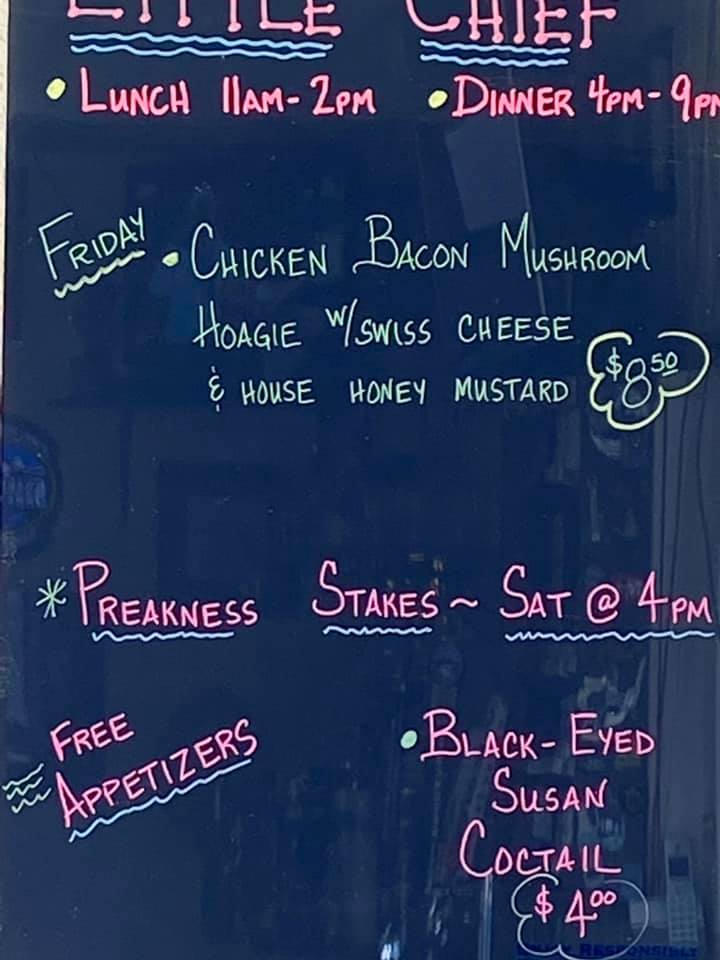 LITTLE CHIEF
• LUNCH 11AM-2PM • DINNER 4PM-9PM
FRIDAY • CHICKEN BACON MUSHROOM
HOAGIE W/SWISS CHEESE
& HOUSE HONEY MUSTARD $8.50
* PREAKNESS STAKES ~ SAT @ 4PM
FREE
APPETIZERS
• BLACK-EYED
SUSAN
COCTAIL
$4.00
RESPONSIBLY